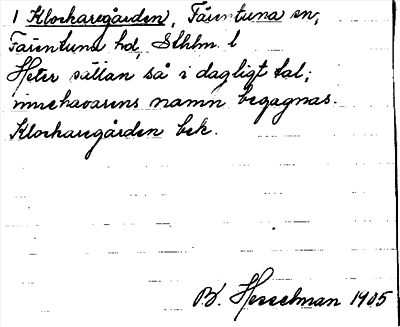 1 Klockaregården, Färentuna sn,
Färentuna hd, Sthlm. l
Heter sällan så i dagligt tal;
innehavarens namn begagnas.
Klockaregården bek.
Br. Hesselman 1905